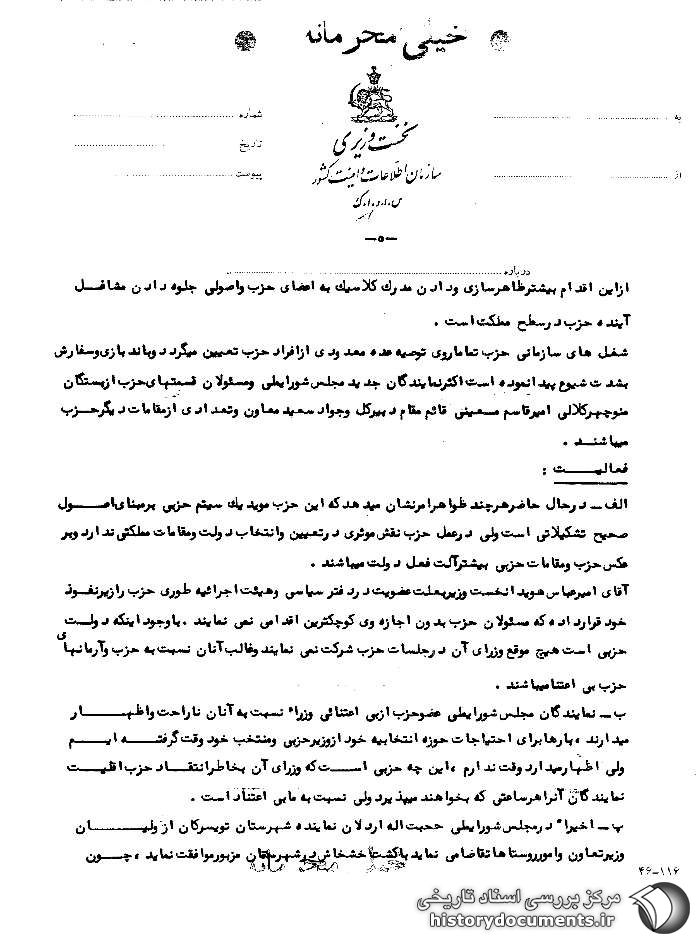 خیلی محرمانه
به
از
نخست وزیری
سازمان اطلاعات و امنیت کشور
س.ا.و.ا.ک
شماره
تاریخ
پیوست
-۵-
درباره
ازاین اقدام بیشترظاهرسازی ودادن مدرك كلاسيك به اعضای حزب واصولی جلوه دادن مشاغل
آینده حزب درسطح مملکت است .
شغل های سازمانی حزب تماماروی توصیه عده معدودی ازافراد حزب تعیین میگردد وباند بازی وسفارش
بشدت شیوع پیدانموده است اکثرنمایندگان جدید مجلس شورایملی ومسئولان قسمتهای حزب ازبستگان
منوچهرکلالی امیرقاسم معینی قائم مقام دبیرکل وجواد سعید معاون وتعدادی ازمقامات دیگرحزب
میباشند .
فعالیت :
الف - درحال حاضرهرچند ظواهرامرنشان میدهدکه این حزب موید یك سیتم حزبی برمبنای اصول
صحیح تشکیلاتی است ولی درعمل حزب نقش موثری درتعیین وانتخاب دولت ومقامات مملکتی ندارد وبر
عکس حزب ومقامات حزبی بیشترآلت فعل دولت میباشند .
آقای امیرعباس هویدا نخست وزیربعلت عضویت در دفتر سیاسی وهیئت اجرائیه طوری حزب رازیرنفوذ
خود قرارداده که مسئولان حزب بدون اجازه وی کوچکترین اقدامی نمی نمایند . باوجود اینکه دولت
حزبی است هیچ موقع وزرای آن درجلسات حزب شرکت نمی نمایند وغالب آنان نسبت به حزب وآرمانهای
حزب بی اعتنامیباشند .
ب - نمایندگان مجلس شورایملی عضوحزب ازبی اعتنائی وزراء نسبت به آنان ناراحت واظهار
میدارند ، بارهابرای احتیاجات حوزه انتخابیه خود ازوزیرحزبی ومنتخب خود وقت گرفته ایم
ولی اظهارمیدارد وقت ندارم ، این چه حزبی است که وزرای آن بخاطرانتقاد حزب اقلیت
نمایندگان آنراهرساعتی که بخواهند میپذیرد ولی نسبت به مابی اعتناد است .
پ - اخیراً درمجلس شورایملی حجت اله اردلان نماینده شهرستان تویسرکان ازولیان
وزیرتعاون وامورروستاها تقاضامی نماید باکشت خشخاش درشهرستان مزبورموافقت نماید ، چون
خیلی محرمانه
۴۶-۱۱۶
مرکز بررسی اسناد تاریخی
historydocuments.ir